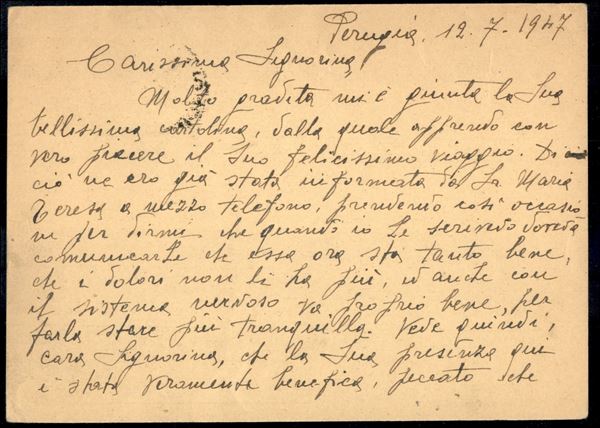 Perugia, 12.7.1947
Carissima Signorina,
Molto gradita mi è giunta la Sua
bellissima cartolina, dalla quale apprendo con
vero piacere il Suo felicissimo viaggio. Di
ciò ne ero già stata informata da Sr. Maria
Teresa a mezzo telefono, prendendo così occasio
ne per dirmi che quando io Le scrivendo dovevo
comunicarLe che essa ora sta tanto bene,
che i dolori non li ha più, ed anche con
il sistema nervoso va proprio bene, per
farla stare più tranquilla. Vede quindi,
cara Signorina, che la Sua presenza qui
è stata veramente benefica, peccato che